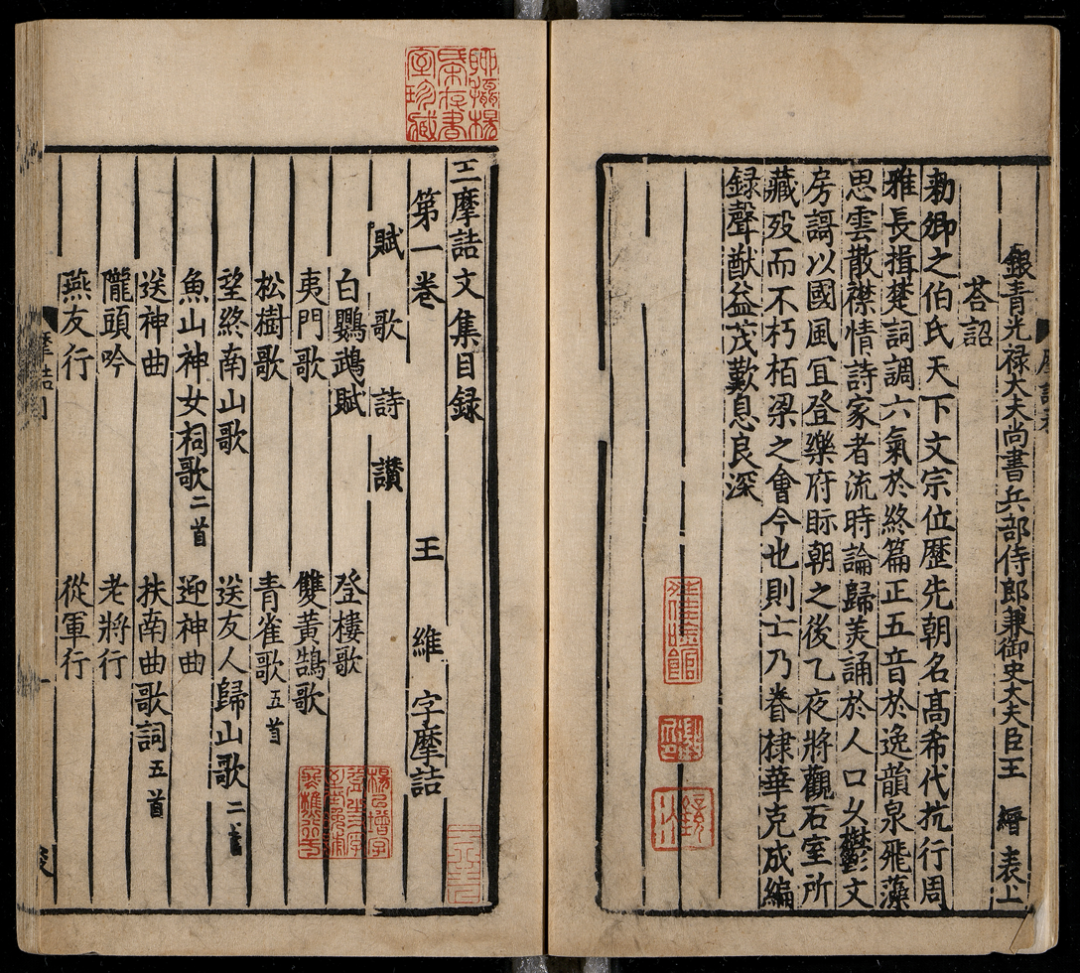 銀青光禄大夫尚書兵部侍郎兼御史大夫臣王 縉 表上
荅詔
勑卿之伯氏天下文宗位歷先朝名髙希代抗行周
雅長揖楚詞調六氣於終篇正五音於逸韻泉飛藻
思雲散襟情詩家者流時論歸羙誦於人口乆鬱文
房謌以國風冝登樂府眎朝之後乙夜將觀石室所
藏殁而不朽栢梁之會今也則士乃眷棣華克成編
録聲猷益茂歎息良深
王摩詰文集目録
第一卷 王 維 字摩詰
賦 歌 詩 讃
白鸚鵡賦 登樓歌
夷門歌 雙黃鵠歌
松樹歌 青雀歌五首
望終南山歌 送友人歸山歌二首
魚山神女祠歌二首 迎神曲
送神曲 扶南曲歌詞五首
隴頭吟 老將行
燕友行 從軍行